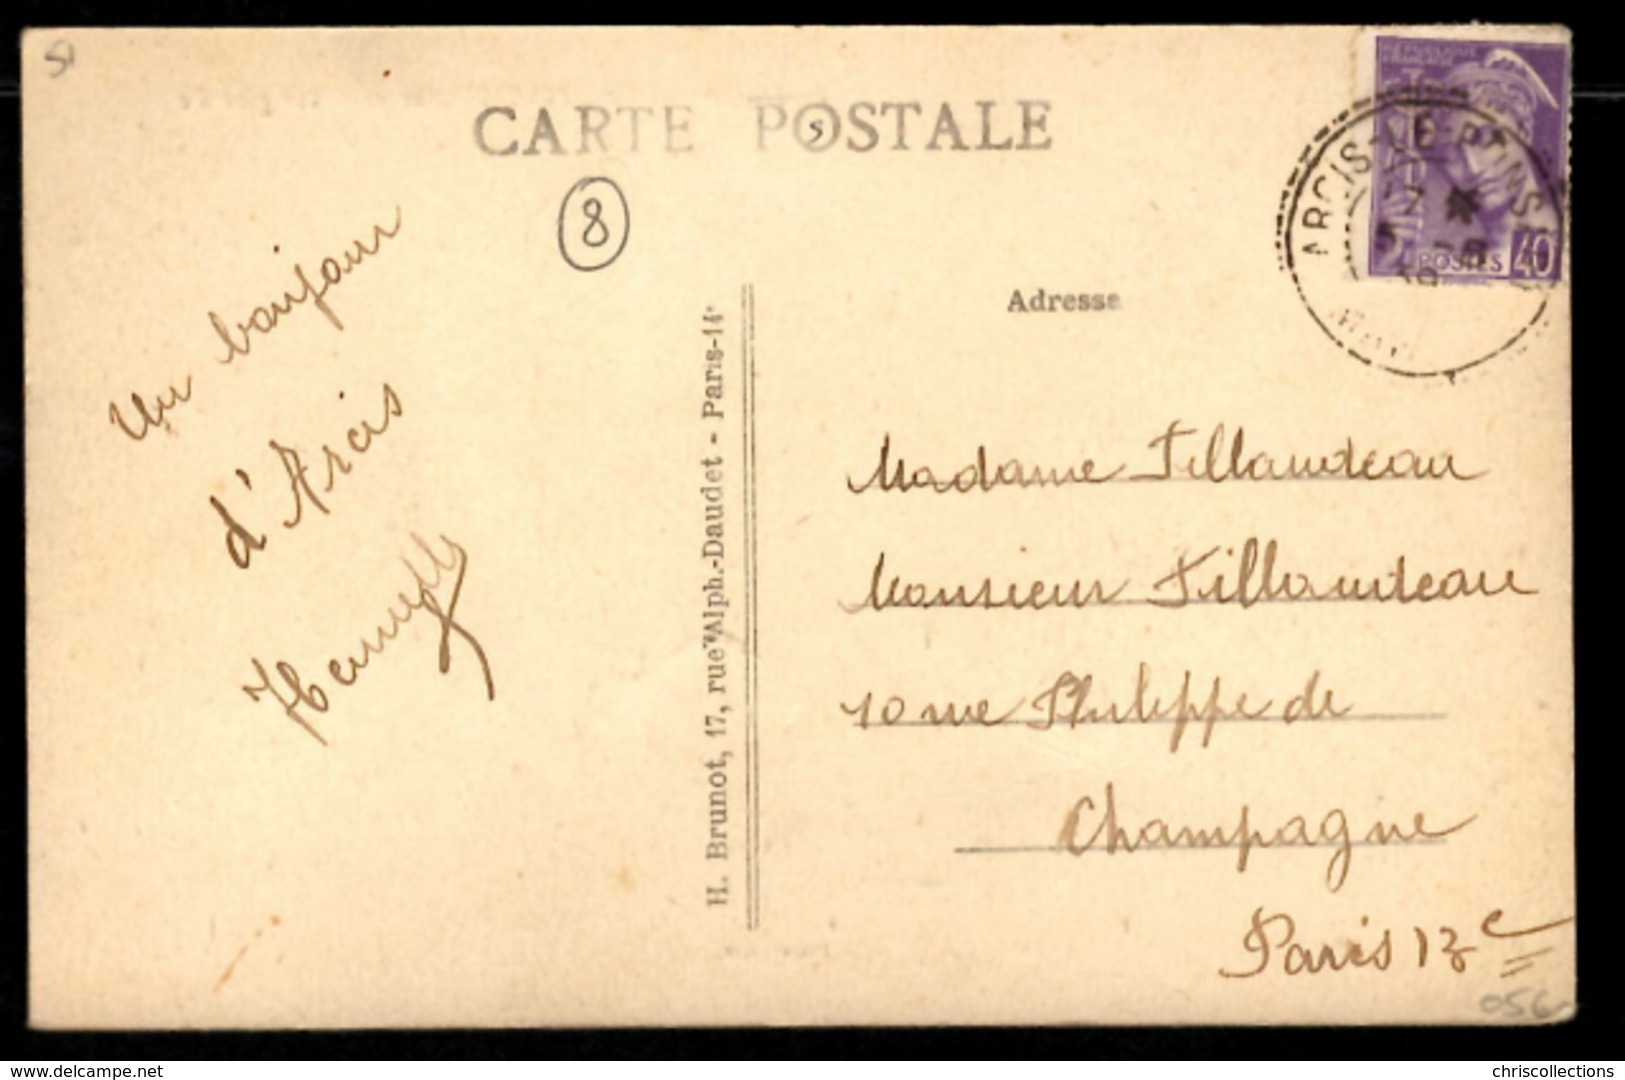 CARTE POSTALE
8
Un bonjour
d'Arcis
H. Brunot, 17, rue Alph.-Daudet - Paris-14e
Adresse
REPUBLIQUE
FRANÇAISE
POSTES 40
ARCIS-LE-PONSART
Madame Fillaudeau
Monsieur Fillaudeau
10 rue Philippe de
Champagne
Paris 13e
056
delcampe.net
chriscollections